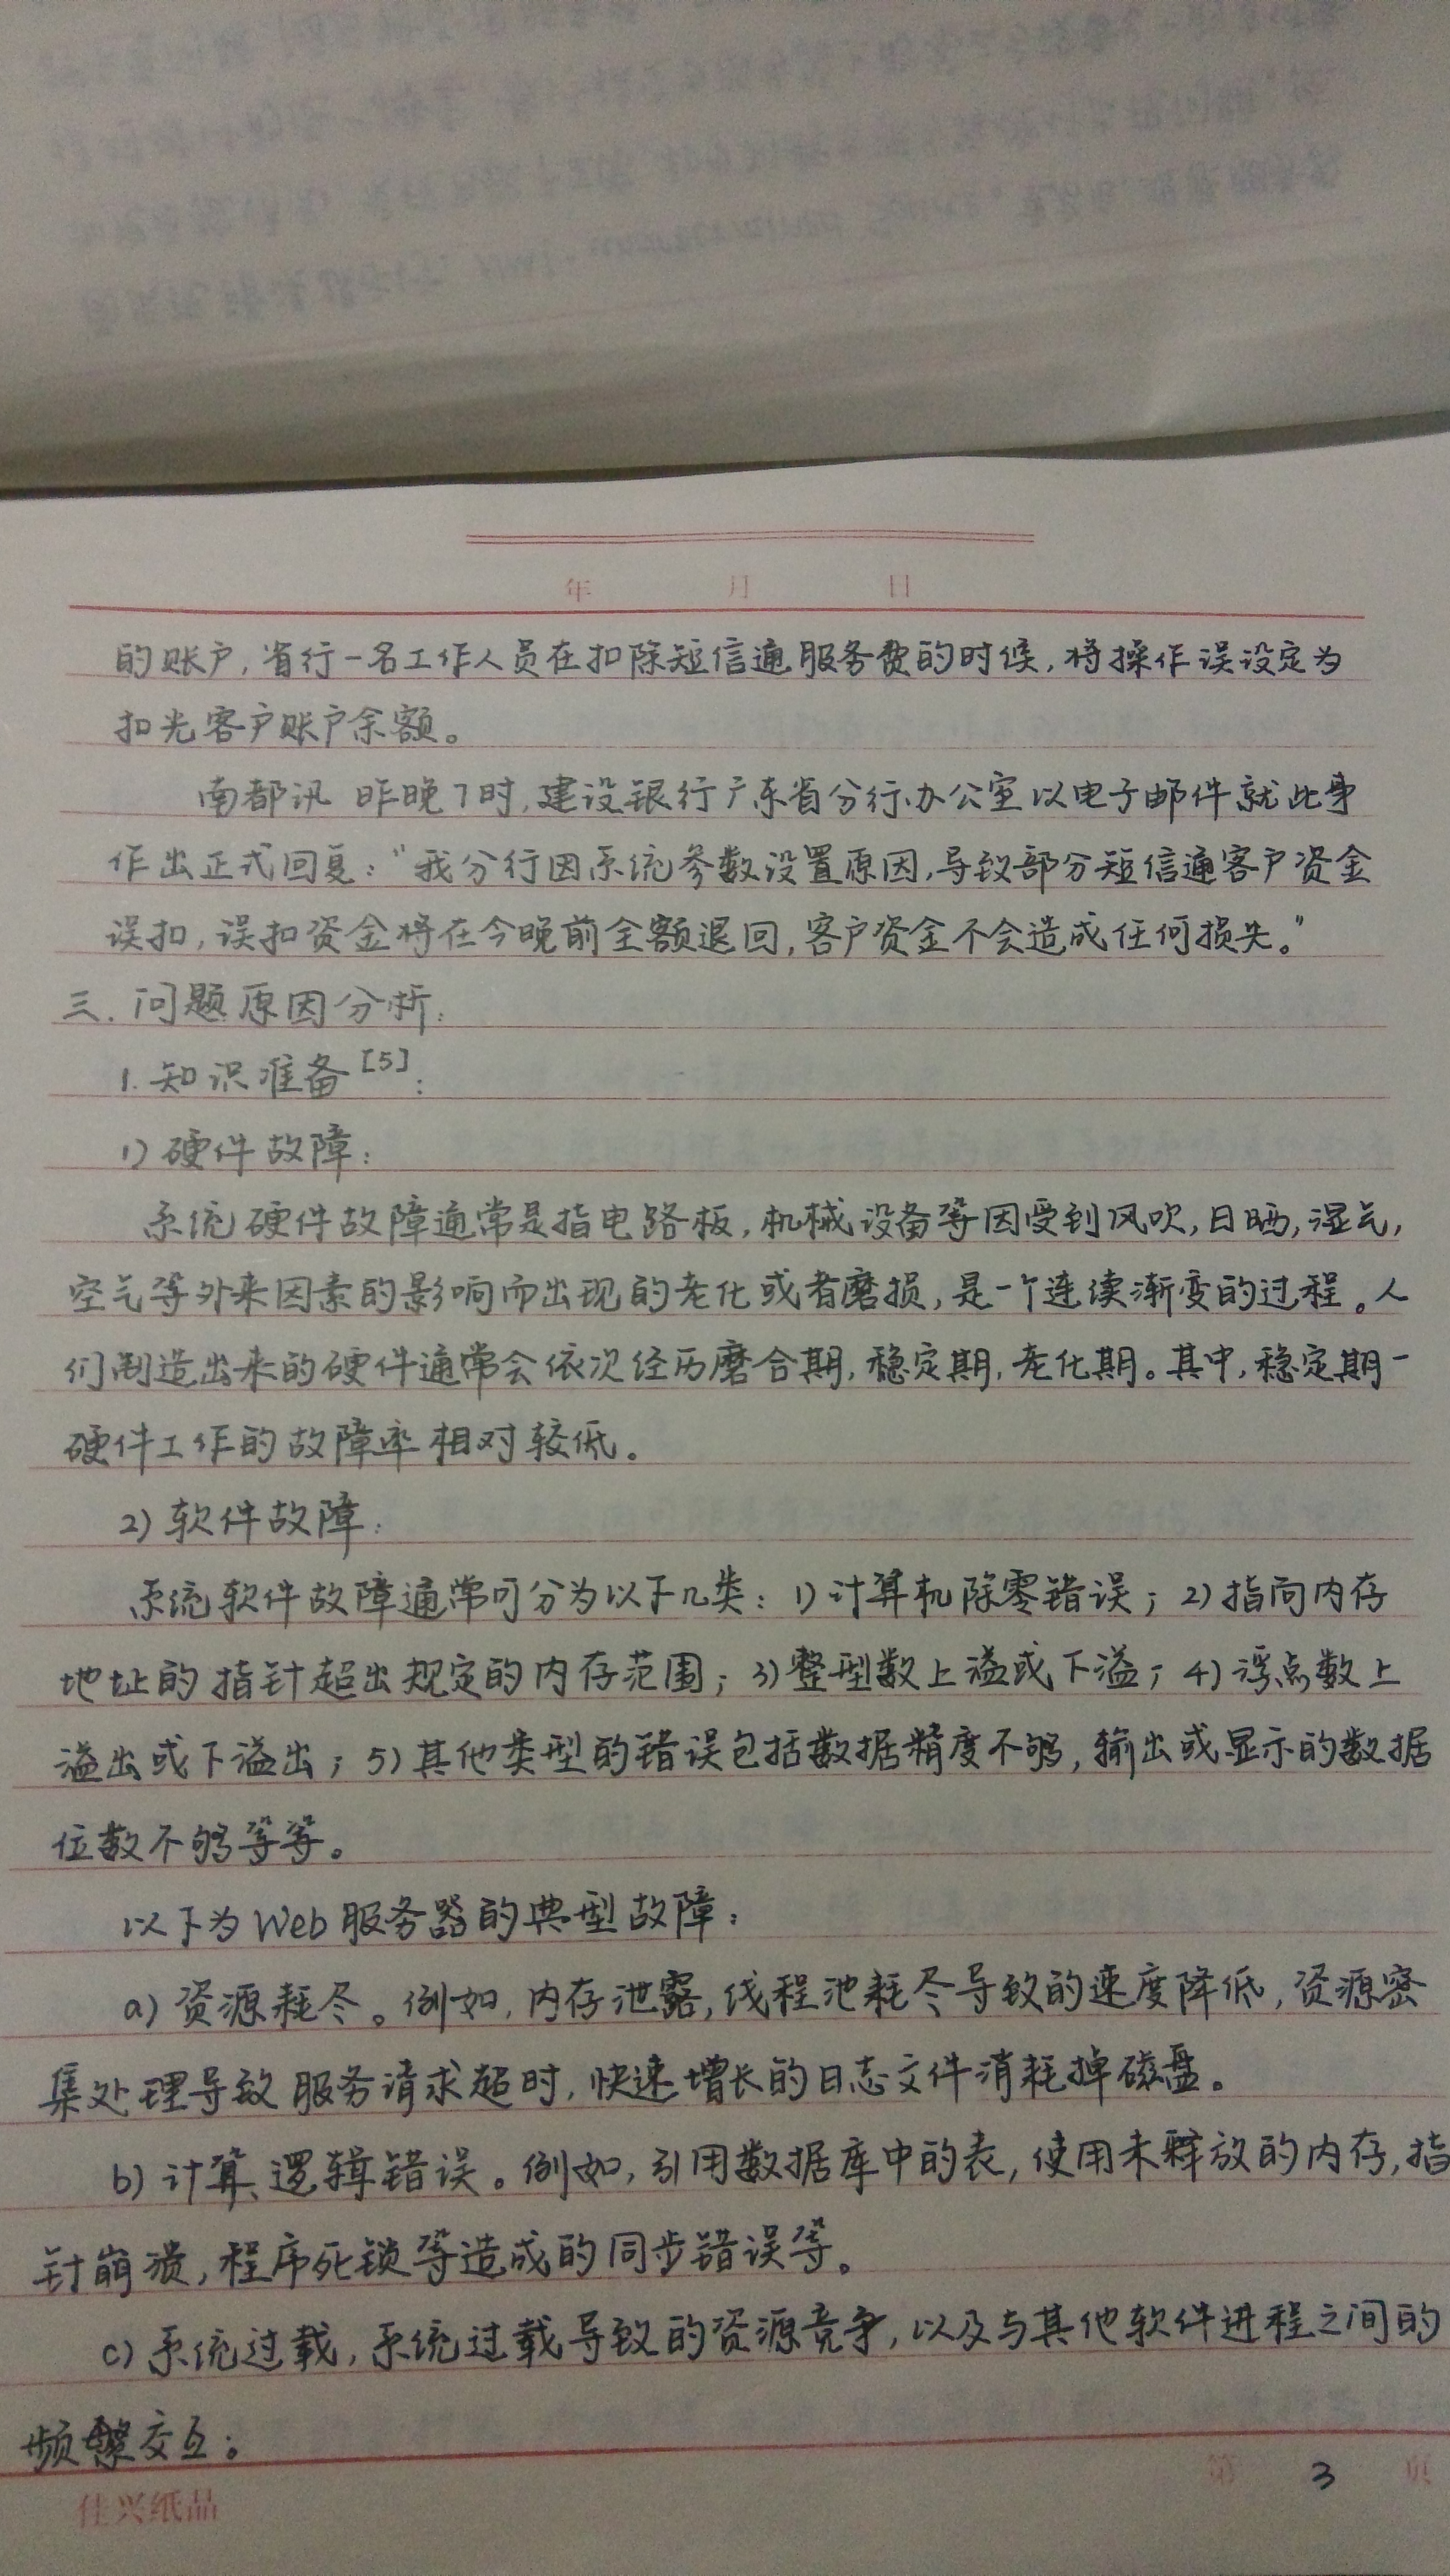 年 月 日
的账户,省行一名工作人员在扣除短信通服务费的时候,将操作误设定为
扣光客户账户余额。
南都讯 昨晚7时,建设银行广东省分行办公室以电子邮件就此事
作出正式回复:“我分行因系统参数设置原因,导致部分短信通客户资金
误扣,误扣资金将在今晚前全额退回,客户资金不会造成任何损失。”
三.问题原因分析:
1.知识准备[5]:
1)硬件故障:
系统硬件故障通常是指电路板,机械设备等因受到风吹,日晒,湿气,
空气等外来因素的影响而出现的老化或者磨损,是一个连续渐变的过程。人
们制造出来的硬件通常会依次经历磨合期,稳定期,老化期。其中,稳定期一
硬件工作的故障率相对较低。
2)软件故障:
系统软件故障通常可分为以下几类:1)计算机除零错误;2)指向内存
地址的指针超出规定的内存范围;3)整型数上溢或下溢;4)浮点数上
溢出或下溢出;5)其他类型的错误包括数据精度不够,输出或显示的数据
位数不够等等。
以下为Web服务器的典型故障:
a)资源耗尽。例如,内存泄露,线程池耗尽导致的速度降低,资源密
集处理导致服务请求超时,快速增长的日志文件消耗掉磁盘。
b)计算、逻辑错误。例如,引用数据库中的表,使用未释放的内存,指
针崩溃,程序死锁等造成的同步错误等。
c)系统过载,系统过载导致的资源竞争,以及与其他软件进程之间的
频繁交互。
第 3 页
佳兴纸品